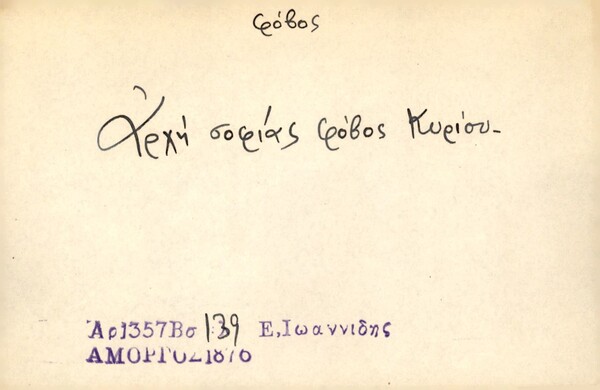 φόβος
Ἀρχή σοφίας φόβος Κυρίου-
Ἀρ1357Βσ 139 Ε,Ιωαννιδης
ΑΜΟΡΓΟΣ1876